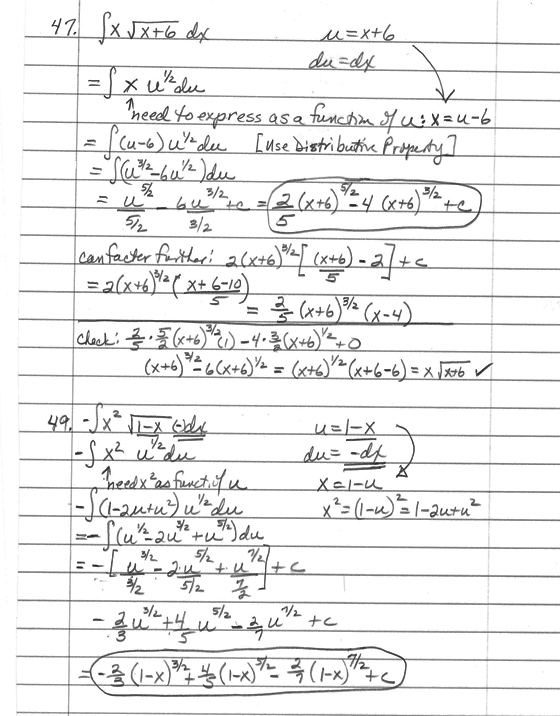 47. ∫x √(x+6) dx    u = x+6
du = dx
= ∫ x u^(1/2) du
↑ need to express as a function of u: x = u-6
= ∫(u-6) u^(1/2) du    [Use Distributive Property]
= ∫(u^(3/2) - 6u^(1/2)) du
= u^(5/2)/(5/2) - 6u^(3/2)/(3/2) + c = 2/5 (x+6)^(5/2) - 4 (x+6)^(3/2) + c
can factor further: 2(x+6)^(3/2) [(x+6)/5 - 2] + c
= 2(x+6)^(3/2) (x+6-10)/5)
= 2/5 (x+6)^(3/2) (x-4)
check: 2/5 · 5/2 (x+6)^(3/2) (1) - 4 · 3/2 (x+6)^(1/2) + 0
(x+6)^(3/2) - 6(x+6)^(1/2) = (x+6)^(1/2) (x+6-6) = x √(x+6) ✓
49. -∫x² √(1-x) (-dx)    u = 1-x
-∫ x² u^(1/2) du    du = -dx
↑ need x² as funct. of u    x = 1-u
-∫(1-2u+u²) u^(1/2) du    x² = (1-u)² = 1-2u+u²
= -∫(u^(1/2) - 2u^(3/2) + u^(5/2)) du
= -[u^(3/2)/(3/2) - 2u^(5/2)/(5/2) + u^(7/2)/(7/2)] + c
- 2/3 u^(3/2) + 4/5 u^(5/2) - 2/7 u^(7/2) + c
= -2/3 (1-x)^(3/2) + 4/5 (1-x)^(5/2) - 2/7 (1-x)^(7/2) + c